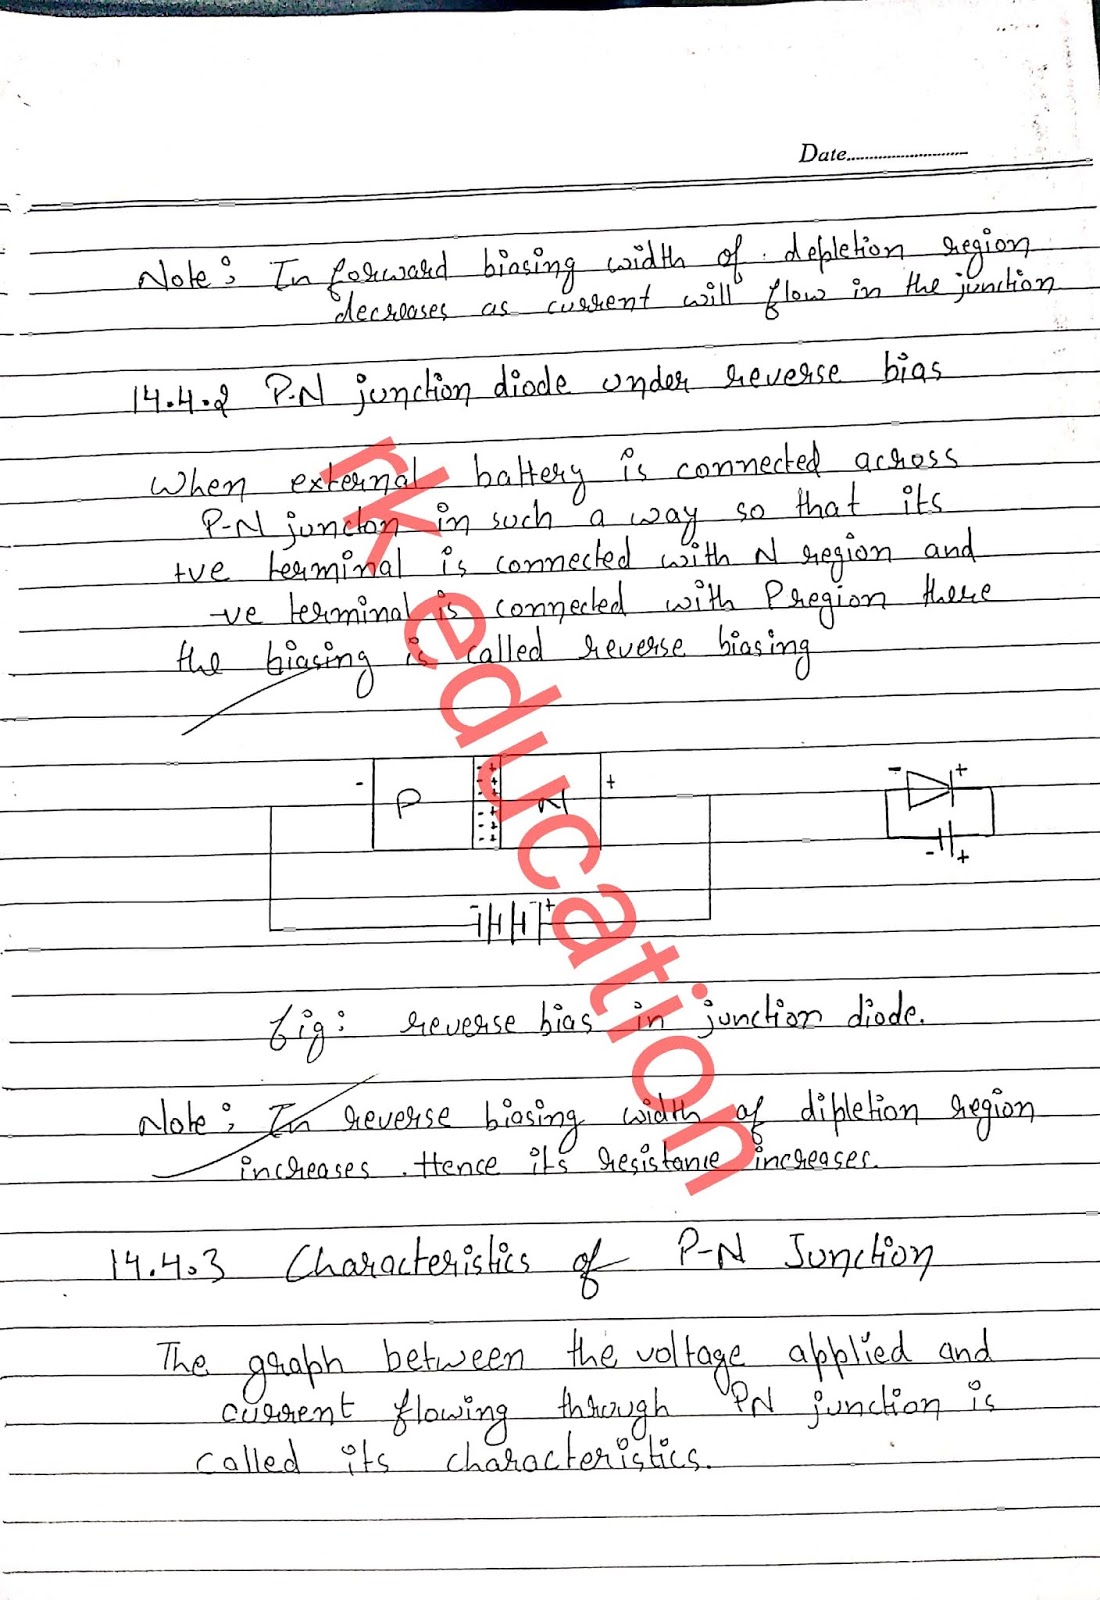 Date
Note: In forward biasing width of depletion region
decreases as current will flow in the junction
14.4.2 P-N junction diode under reverse bias
When external battery is connected across
P-N juncton in such a way so that its
+ve terminal is connected with N region and
-ve terminal is connected with P region there
the biasing is called reverse biasing
- P - + N +
- +
- +
- +
fig: reverse bias in junction diode.
Note: In reverse biasing width of dipletion region
increases. Hence its resistance increases.
14.4.3 Characteristics of P-N Junction
The graph between the voltage applied and
current flowing through PN junction is
called its characteristics.
rk education